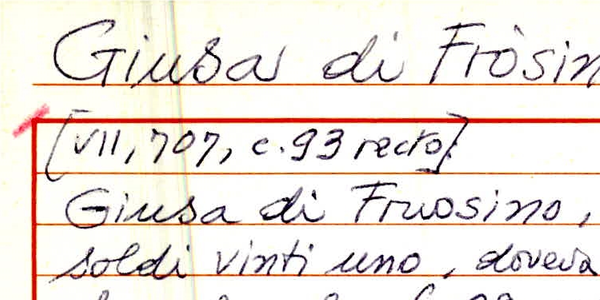 Giusa di Fròsin
[VII, 707, c. 93 recto].
Giusa di Fruosino,
soldi vinti uno, doveva